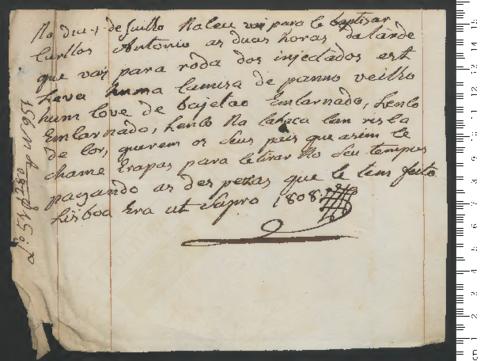 No dia 1 de Juillo Naceu vai para le baptizar
Carllos Antonio as duas horas datarde
que vai para roda dos injectados est
Leva huma Camiza de panno veilho
hum Cove de bajetao Emcarnado, henco
Emcarnado, henco Na Cabeca Can risca
de Cor, querem os Seus pais que asim le
chame Erapas para letirar No Seu tempo
pagando as des pezas que le tem feito
Lisboa Era ut Supro 1808